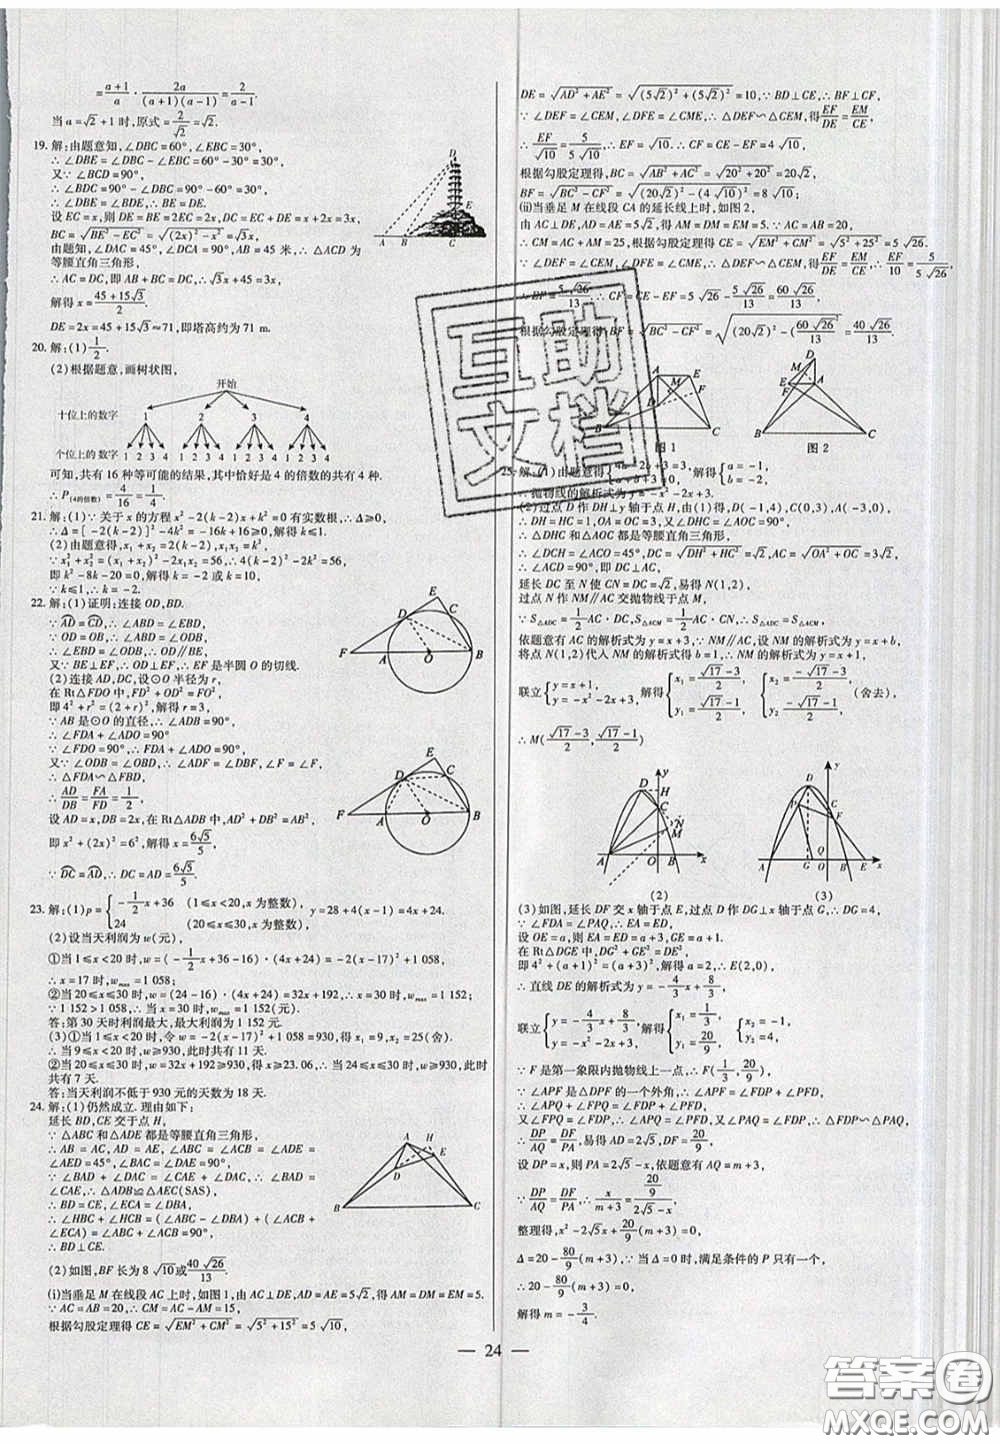 =(a+1)/a·2a/((a+1)(a-1))=2/(a-1).
当a=√2+1时,原式=2/√2=√2.
19.解:由题意知,∠DBC=60°,∠EBC=30°,
∴∠DBE=∠DBC-∠EBC=60°-30°=30°.
又∵∠BCD=90°,
∴∠BDC=90°-∠DBC=90°-60°=30°.
∴∠DBE=∠BDE.∴BE=DE.
设EC=x,则DE=BE=2EC=2x,DC=EC+DE=x+2x=3x,
BC=√(BE²-EC²)=√((2x)²-x²)=√3x,
由题知,∠DAC=45°,∠DCA=90°,AB=45米,∴△ACD为
等腰直角三角形,
∴AC=DC,即AB+BC=DC,∴√3x+45=3x,
解得x=(45+15√3)/2.
DE=2x=45+15√3≈71,即塔高约为71 m.
D
E
A B C
20.解:(1)1/2.
(2)根据题意,画树状图,
开始
十位上的数字 1 2 3 4
个位上的数字 1 2 3 4 1 2 3 4 1 2 3 4 1 2 3 4
可知,共有16种等可能的结果,其中恰好是4的倍数的共有4种.
∴P(4的倍数)=4/16=1/4.
21.解:(1)∵关于x的方程x²-2(k-2)x+k²=0有实数根,∴Δ≥0,
∴Δ=[-2(k-2)]²-4k²=-16k+16≥0,解得k≤1.
(2)由题意得,x₁+x₂=2(k-2),x₁x₂=k²,
∵x₁²+x₂²=(x₁+x₂)²-2x₁x₂=56,∴4(k-2)²-2k²=56,
即k²-8k-20=0,解得k=-2或k=10,
∵k≤1,∴k=-2.
22.解:(1)证明:连接OD,BD.
∵AD=CD,∴∠ABD=∠EBD,
∵OD=OB,∴∠ABD=∠ODB,
∴∠EBD=∠ODB,∴OD∥BE,
又∵BE⊥EF,∴OD⊥EF,∴EF是半圆O的切线.
(2)连接AD,DC,设⊙O半径为r,
在Rt△FDO中,FD²+OD²=FO²,
即4²+r²=(2+r)²,解得r=3,
∵AB是⊙O的直径,∴∠ADB=90°,
∴∠ADO+∠ODB=90°,
∵∠FDO=90°,∴∠FDA+∠ADO=90°,
又∵∠ODB=∠OBD,∴∠ADF=∠DBF,∠F=∠F,
∴△FDA∽△FBD,
∴AD/DB=FA/FD=1/2,
设AD=x,DB=2x,在Rt△ADB中,AD²+DB²=AB²,
即x²+(2x)²=6²,解得x=6√5/5,
∵DC=AD,∴DC=AD=6√5/5.
E C D F A O B
E D C F A O B
23.解:(1)p={-1/2x+36 (1≤x<20,x为整数)
24 (20≤x≤30,x为整数),y=28+4(x-1)=4x+24.
(2)设当天利润为w(元),
①当1≤x<20时,w=(-1/2x+36-16)·(4x+24)=-2(x-17)²+1 058,
∴x=17时,wmax=1 058;
②当20≤x≤30时,w=(24-16)·(4x+24)=32x+192,∴x=30时,wmax=1 152;
∵1 152>1 058,∴x=30时,wmax=1 152.
答:第30天时利润最大,最大利润为1 152元.
(3)①当1≤x<20时,令w=-2(x-17)²+1 058=930,得x=9,x=25(舍).
∴当9≤x<20时,w≥930,此时共有11天.
②当20≤x≤30时,w=32x+192≥930,得x≥23.06,∴当24≤x≤30时,w≥930,此时
共有7天.
答:当天利润不低于930元的天数为18天.
24.解:(1)仍然成立.理由如下:
延长BD,CE交于点H,
∵△ABC和△ADE都是等腰直角三角形,
∴AB=AC,AD=AE,∠ABC=∠ACB=∠ADE=
∠AED=45°,∠BAC=∠DAE=90°,
∵∠BAD+∠DAC=∠CAE+∠DAC=90°,∴∠BAD=
∠CAE,∴△ADB≌△AEC(SAS),
∴BD=CE,∠ECA=∠DBA,
∴∠HBC+∠HCB=(∠ABC-∠DBA)+(∠ACB+
∠ECA)=∠ABC+∠ACB=90°,∴∠H=90°,
∴BD⊥CE.
A H E D B C
(2)如图,BF长为8√10或40√26/13.
(ⅰ)当垂足M在线段AC上时,如图1,由AC⊥DE,AD=AE=5√2,得AM=EM=DM=5.
∵AC=AB=20,∴CM=AC-AM=15,
根据勾股定理得CE=√(EM²+CM²)=√(5²+15²)=5√10,
DE=√(AD²+AE²)=√((5√2)²+(5√2)²)=10,∵BD⊥CE,∴BF⊥CF,
∵∠DEF=∠CEM,∠DFE=∠CME,∴△DEF∽△CEM,得EF/DE=EM/CE,
∴EF/10=5/(5√10),∴EF=√10.∴CF=CE-EF=4√10,
根据勾股定理得,BC=√(AB²+AC²)=√(20²+20²)=20√2,
BF=√(BC²-CF²)=√((20√2)²-(4√10)²)=8√10,
(ⅱ)当垂足M在线段CA的延长线上时,如图2,
由AC⊥DE,AD=AE=5√2,得AM=DM=EM=5.∵AC=AB=20,
∴CM=AC+AM=25,根据勾股定理得CE=√(EM²+CM²)=√(5²+25²)=5√26.
∵∠DEF=∠CEM,∠DFE=∠CME,∴△DEF∽△CEM,得EF/DE=EM/CE,∴EF/10=5/(5√26),
∴EF=5√26/13.∴CF=CE-EF=5√26-5√26/13=60√26/13,
根据勾股定理得BF=√(BC²-CF²)=√((20√2)²-(60√26/13)²)=40√26/13.
A E M F D B C 图1
D M E A F B C 图2
25.解:(1)由题意得{4a-2b+3=3,a+b+3=0,解得{a=-1,b=-2.
∴抛物线的解析式为y=-x²-2x+3.
(2)过点D作DH⊥y轴于点H,由(1)得,D(-1,4),C(0,3),A(-3,0),
∴DH=HC=1,OA=OC=3,又∵∠DHC=∠AOC=90°,
∴△DHC和△AOC都是等腰直角三角形,
∴∠DCH=∠ACO=45°,DC=√(DH²+HC²)=√2,AC=√(OA²+OC²)=3√2,
∴∠ACD=90°,即DC⊥AC,
延长DC至N使CN=DC=√2,易得N(1,2),
过点N作NM∥AC交抛物线于点M,
∵S△ADC=1/2AC·DC,S△ACM=1/2AC·CN,∴S△ADC=S△ACM,
依题意有AC的解析式为y=x+3,∵NM∥AC,设NM的解析式为y=x+b,
将点N(1,2)代入NM的解析式得b=1,∴NM的解析式为y=x+1.
联立{y=x+1,y=-x²-2x+3,解得{x₁=(√17-3)/2,y₁=(√17-1)/2,{x₂=(-√17-3)/2,y₂=(-√17-1)/2(舍去),
∴M((√17-3)/2,(√17-1)/2)
y D H C N M A O B x (2)
y D P F A G Q O B E x (3)
(3)如图,延长DF交x轴于点E,过点D作DG⊥x轴于点G,∴DG=4,
∵∠FDA=∠PAQ,∴EA=ED,
设OE=a,则EA=ED=a+3,GE=a+1.
在Rt△DGE中,DG²+GE²=DE²,
即4²+(a+1)²=(a+3)²,解得a=2,∴E(2,0),
∴直线DE的解析式为y=-4/3x+8/3,
联立{y=-4/3x+8/3,y=-x²-2x+3,解得{x₁=1/3,y₁=20/9,{x₂=-1,y₂=4,
∵F是第一象限内抛物线上一点,∴F(1/3,20/9),
∵∠APF是△DPF的一个外角,∴∠APF=∠FDP+∠PFD,
∴∠APQ+∠FPQ=∠FDP+∠PFD,
又∠FPQ=∠FDP,∴∠APQ=∠PFD,又∵∠FDP=∠PAQ,∴△FDP∽△PAQ,
∴DP/AQ=DF/PA,易得AD=2√5,DF=20/9,
设DP=x,则PA=2√5-x,依题意有AQ=m+3,
∵DP/AQ=DF/PA,∴x/(m+3)=(20/9)/(2√5-x),
整理得,x²-2√5x+20/9(m+3)=0,
Δ=20-80/9(m+3),∵当Δ=0时,满足条件的P只有一个,
∴20-80/9(m+3)=0,
解得m=-3/4.
— 24 —
互助
文档
答案圈
MXQE.COM